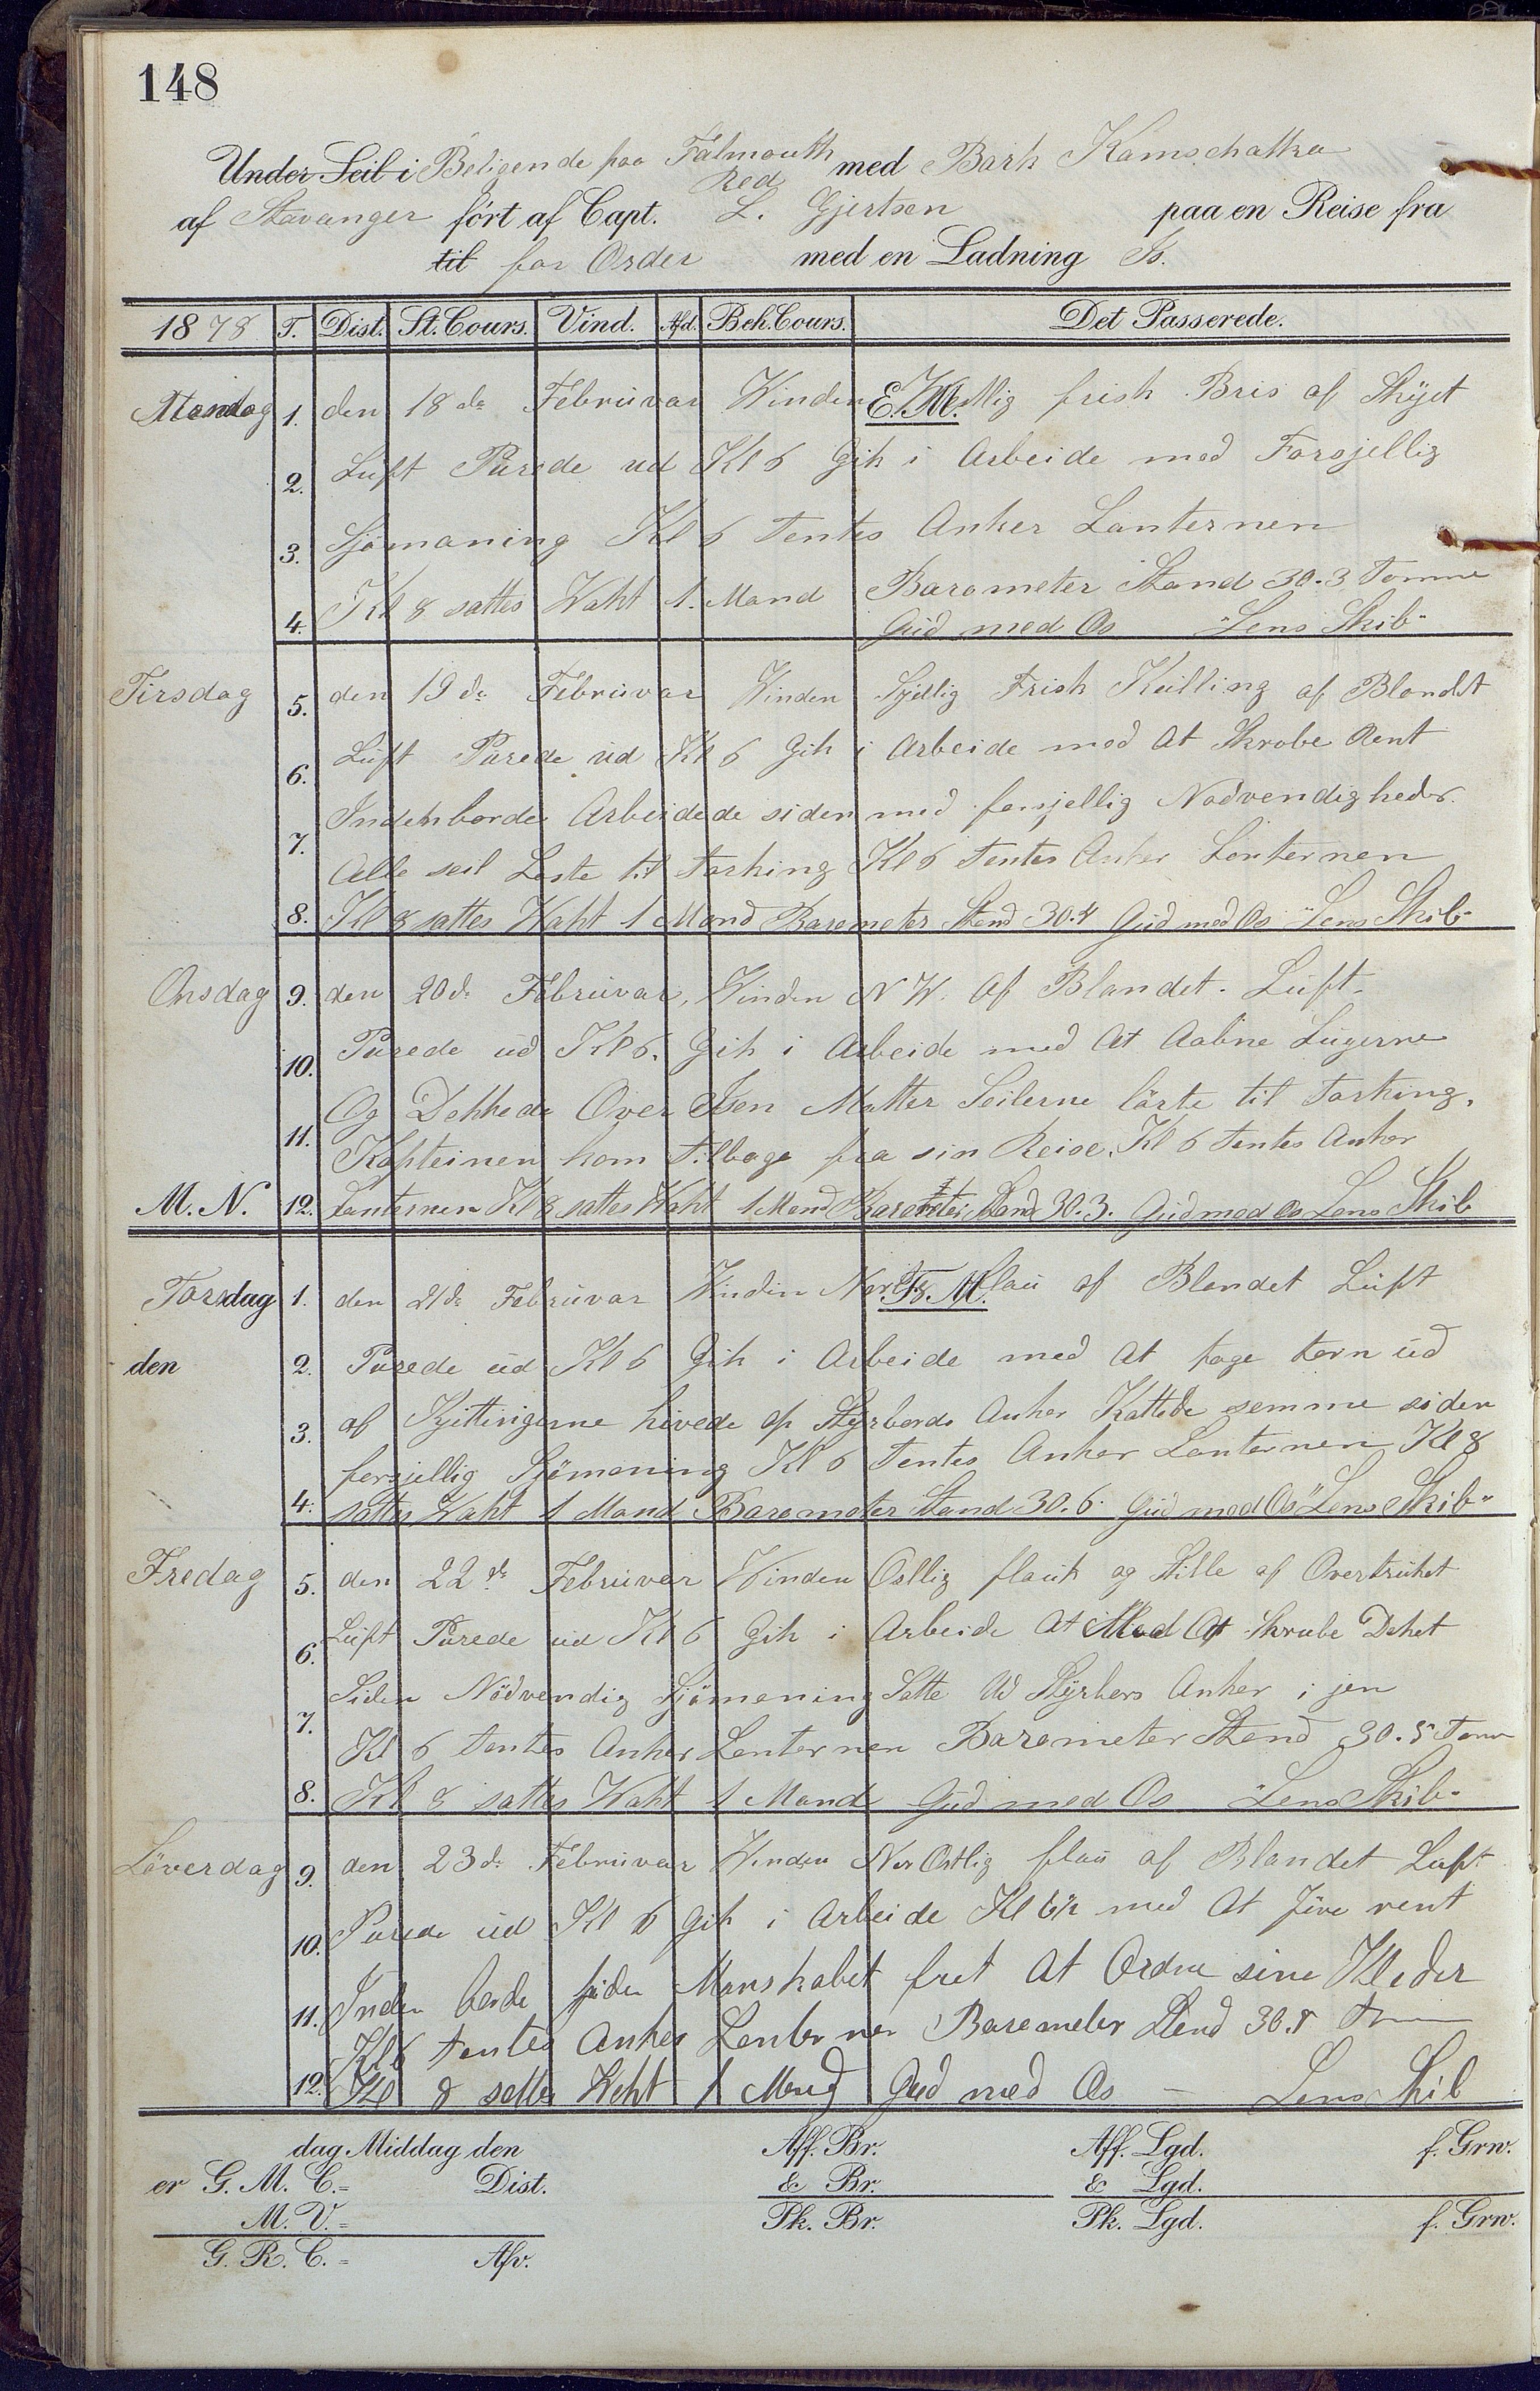 148
Under Seil i Beligende paa Falmouth Red med Bark Kamschatka
af Stavanger ført af Capt. L. Gjertsen paa en Reise fra
til for Order med en Ladning Is.
1878 T. Dist. St. Cours. Vind. Afd. Beh. Cours. Det Passerede.
E. M.
Mandag 1. den 18de Februvar Winden Westlig frisk Bris af Skyet
2. Luft Purede ud Kl 6 Gik i Arbeide med Forsjellig
3. Sjömaning Kl 6 Tentes Anker Lanternen
4. Kl 8 sattes Waht 1. Mand Barometer Stand 30.3 Tomme
Gud med Os "Lens Skib"
Tirsdag 5. den 19de Februvar Winden Sydlig Frisk Kuilling af Blandt
6. Luft Purede ud Kl 6 Gik i Arbeide med At Skrobe Rent
Indenborde Arbeidede siden med forsjellig Nodvendigheder.
7. Alle seil Loste til Torking Kl 6 Tentes Anker Lanternen
8. Kl 8 sattes Waht 1 Mand Barometer Stand 30.4 Gud med Os "Lens Skib"
Onsdag 9. den 20de Februvar, Winden N W. Af Blandet. Luft.
10. Purede ud Kl 6. Gik i Arbeide med At Aabne Lugerne
Og Dekkede Over Isen Matter Seilerne lörte til Torking.
11. Kapteinen kom Tilbage fra sin Reise. Kl 6 Tentes Anker
M. N. 12. Lanternen Kl 8 sattes Waht 1 Mand Barometer Stand 30.3. Gud med Os Lens Skib
F. M.
Torsdag 1. den 21de Februvar Winden flau af Blandet Luft
den 2. Purede ud Kl 6 Gik i Arbeide med At tage torn ud
3. af Kjittingerne hivede op Styrbords Anker Kattede semme siden
forsjellig Sjömaning Kl 6 Tentes Anker Lanternen Kl 8
4. sattes Waht 1 Mand Barometer Stand 30.6. Gud med Os "Lens Skib"
Fredag 5. den 22de Februvar Winden Ostlig flauk og Stille af Overtrukket
6. Luft Purede ud Kl 6 Gik i Arbeide At Med At Skrube Dekket
Siden Nödvendig Sjömaning Satte Ud Styrbors Anker i jen
7. Kl 6 Tentes Anker Lanternen Barometer Stand 30.5 Tom
8. Kl 8 sattes Waht 1 Mand Gud med Os "Lens Skib"
Löverdag 9. den 23de Februvar Winden Nor Ostlig flau af Blandet Luft
10. Purede ud Kl 6 Gik i Arbeide Kl 6½ med At Jöre rent
11. Inden borde siden Manskabet fret At Ordne sine Kleder
Kl 6 tentes Anker Lanternen Barometer Stend 30.5
12. Kl 8 settes Waht 1 Mand Gud med Os - Lens Skib
dag Middag den Aff. Br. Aff. Lgd. f. Grw.
er G. M. C.= Dist. & Br. & Lgd.
M. V.= Pk. Br. Pk. Lgd. f. Grw.
G. R. C.= Afv.